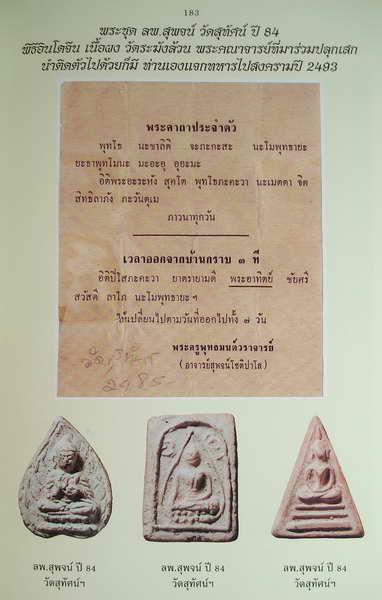 183
พระชุด ลพ.สุพจน์ วัดสุทัศน์ ปี 84
พิธีอินโดจีน เนื้อผง วัดระฆังล้วน พระคณาจารย์ที่มาร่วมปลุกเสก
นำติดตัวไปด้วยก็มี ท่านเองแจกทหารไปสงครามปี 2493
พระคาถาประจำตัว
พุทโธ นะชาลิติ จะภะกะสะ นะโมพุทธายะ
ยะธาพุทโมนะ มะอะอุ อุอะมะ
อิติพระอะระหัง สุคโต พุทโธภะคะวา นะเมตตา จิต
สิทธิลาภัง ภะวันตุเม
ภาวนาทุกวัน
เวลาออกจากบ้านกราบ ๓ ที
อิติปิโสภะคะวา ยาตรายามดี พระอาทิตย์ ชัยศรี
สวัสดี ลาโภ นะโมพุทธายะฯ
ให้เปลี่ยนไปตามวันที่ออกไปทั้ง ๗ วัน
พระครูพุทธมนต์วราจารย์
(อาจารย์สุพจน์โชติปาโล)
วัดสุทัศน์
2485
ลพ.สุพจน์ ปี 84
วัดสุทัศน์ฯ
ลพ.สุพจน์ ปี 84
วัดสุทัศน์ฯ
ลพ.สุพจน์ ปี 84
วัดสุทัศน์ฯ